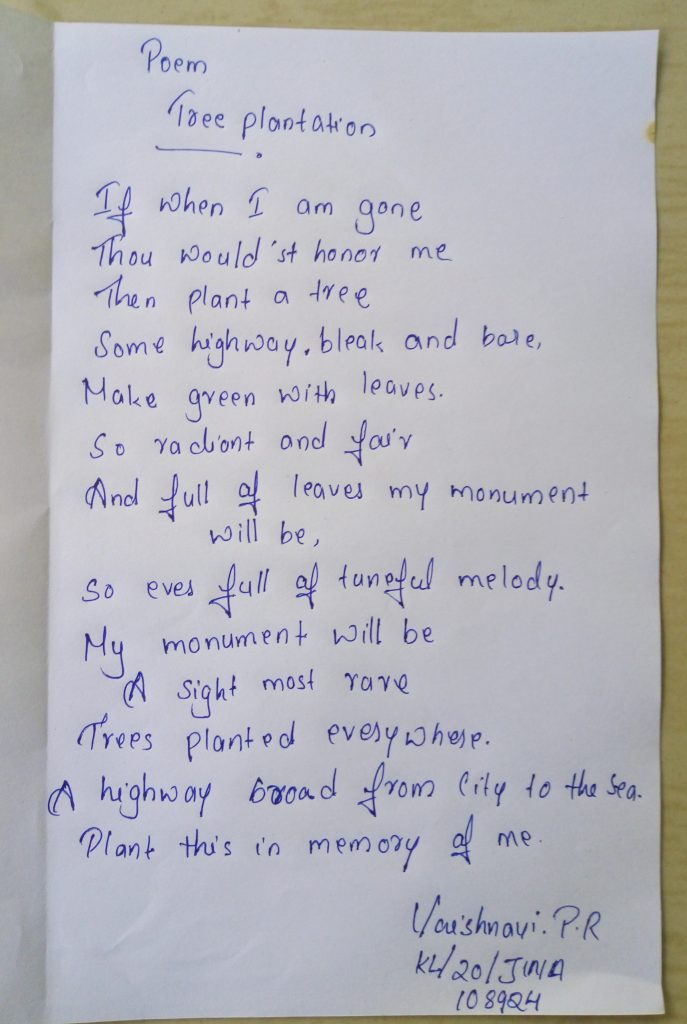 Poem
Tree plantation
If when I am gone
Thou would'st honor me
Then plant a tree
Some highway, bleak and bare,
Make green with leaves.
So radiant and fair
And full of leaves my monument
will be,
So ever full of tuneful melody.
My monument will be
A sight most rare
Trees planted everywhere.
A highway broad from City to the Sea.
Plant this in memory of me.
Vaishnavi. P.R
KL/20/JN/A
108924